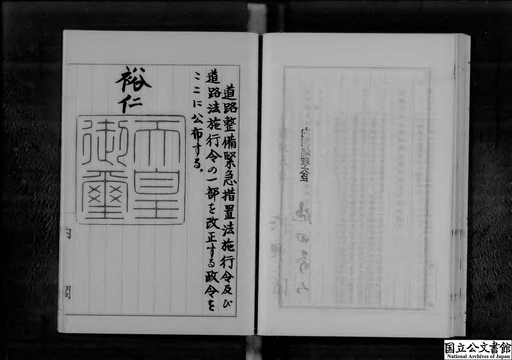 道路整備緊急措置法施行令及び
道路法施行令の一部を改正する政令を
ここに公布する。
裕仁
天皇
御璽
内
閣
国立公文書館
National Archives of Japan